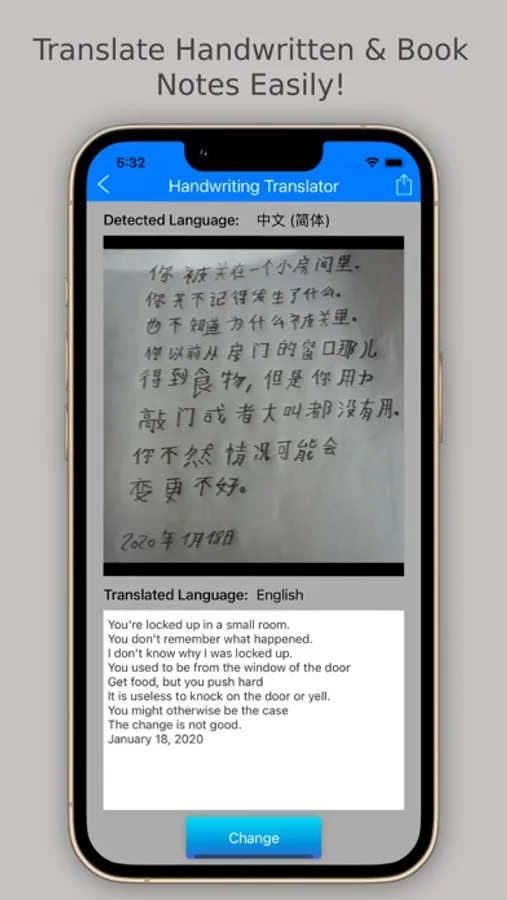 Translate Handwritten & Book
Notes Easily!
5:32
Handwriting Translator
Detected Language: 中文 (简体)
你被关在一个小房间里.
你并不记得发生了什么。
也不知道为什么被关里.
你以前从房门的窗口那儿
得到食物, 但是你用力
敲门或者大叫都没有用.
你不然情况可能会
变更不好。
2020年1月18日
Translated Language: English
You're locked up in a small room.
You don't remember what happened.
I don't know why I was locked up.
You used to be from the window of the door
Get food, but you push hard
It is useless to knock on the door or yell.
You might otherwise be the case
The change is not good.
January 18, 2020
Change